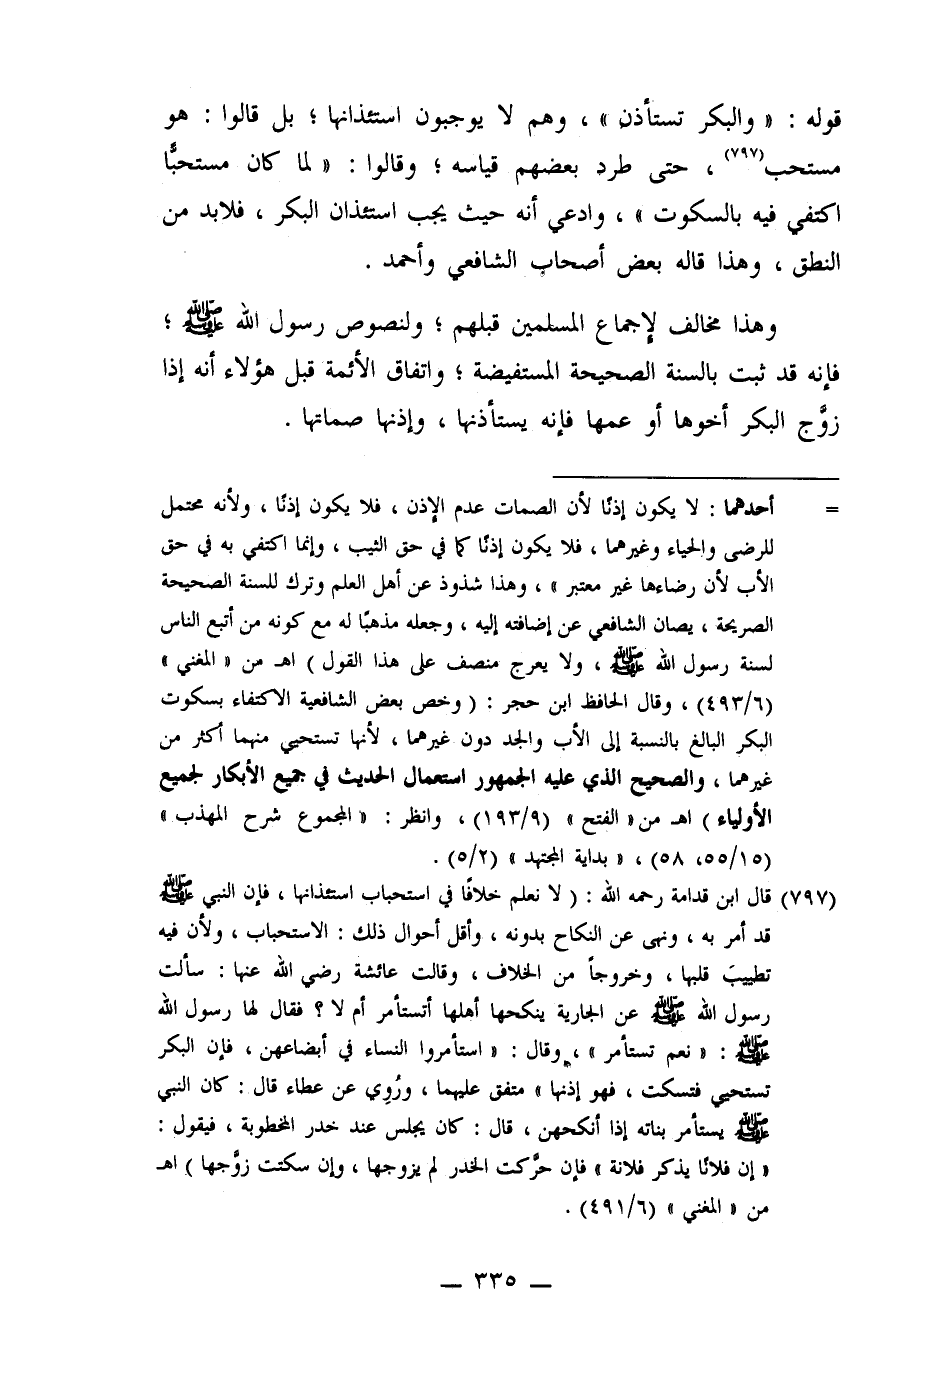 قوله : « والبكر تستأذن » ، وهم لا يوجبون استئذانها ؛ بل قالوا : هو
مستحب(٧٩٧) ، حتى طرد بعضهم قياسه ؛ وقالوا : « لما كان مستحبًّا
اكتفي فيه بالسكوت » ، وادعي أنه حيث يجب استئذان البكر ، فلابد من
النطق ، وهذا قاله بعض أصحاب الشافعي وأحمد .
وهذا مخالف لإجماع المسلمين قبلهم ؛ ولنصوص رسول الله ﷺ ؛
فإنه قد ثبت بالسنة الصحيحة المستفيضة ؛ واتفاق الأئمة قبل هؤلاء أنه إذا
زوَّج البكر أخوها أو عمها فإنه يستأذنها ، وإذنها صماتها .
= أحدهما : لا يكون إذنًا لأن الصمات عدم الإذن ، فلا يكون إذنًا ، ولأنه محتمل
للرضى والحياء وغيرهما ، فلا يكون إذنًا كما في حق الثيب ، وإنما اكتفي به في حق
الأب لأن رضاءها غير معتبر » ، وهذا شذوذ عن أهل العلم وترك للسنة الصحيحة
الصريحة ، يصان الشافعي عن إضافته إليه ، وجعله مذهبًا له مع كونه من أتبع الناس
لسنة رسول الله ﷺ ، ولا يعرج منصف على هذا القول ) اهـ من « المغني »
(٤٩٣/٦) ، وقال الحافظ ابن حجر : ( وخص بعض الشافعية الاكتفاء بسكوت
البكر البالغ بالنسبة إلى الأب والجد دون غيرهما ، لأنها تستحيي منهما أكثر من
غيرهما ، والصحيح الذي عليه الجمهور استعمال الحديث في جميع الأبكار لجميع
الأولياء ) اهـ من « الفتح » (١٩٣/٩) ، وانظر : « المجموع شرح المهذب »
(٥٥/١٥، ٥٨) ، « بداية المجتهد » (٥/٢) .
(٧٩٧) قال ابن قدامة رحمه الله : ( لا نعلم خلافًا في استحباب استئذانها ، فإن النبي ﷺ
قد أمر به ، ونهى عن النكاح بدونه ، وأقل أحوال ذلك : الاستحباب ، ولأن فيه
تطييبَ قلبها ، وخروجاً من الخلاف ، وقالت عائشة رضي الله عنها : سألت
رسول الله ﷺ عن الجارية ينكحها أهلها أتستأمر أم لا ؟ فقال لها رسول الله
ﷺ : « نعم تستأمر » ، وقال : « استأمروا النساء في أبضاعهن ، فإن البكر
تستحيي فتسكت ، فهو إذنها » متفق عليهما ، ورُوِي عن عطاء قال : كان النبي
ﷺ يستأمر بناته إذا أنكحهن ، قال : كان يجلس عند خدر المخطوبة ، فيقول :
« إن فلانًا يذكر فلانة » فإن حرَّكت الخدر لم يزوجها ، وإن سكتت زوَّجها ) اهـ
من « المغني » (٤٩١/٦) .
— ٣٣٥ —